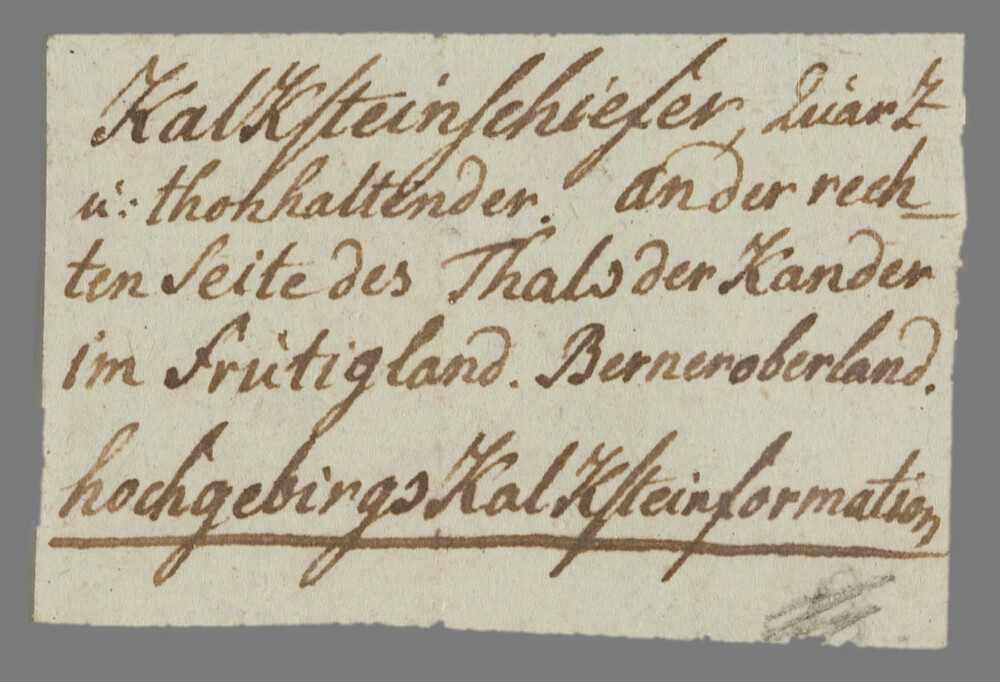 KalKsteinschiefer, Quarz
u: thonhaltender. an der rech_
ten Seite des Thals der Kander
im Frutigland. Berneroberland.
hochgebirgs KalKsteinformation